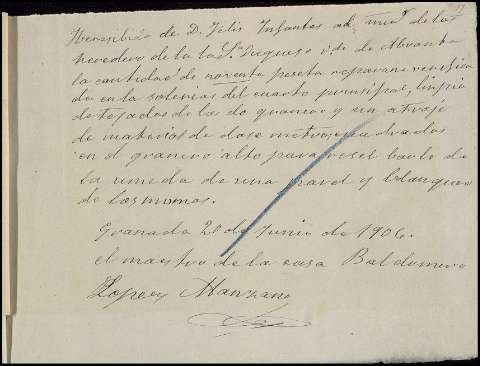 He recibido de D. Felix Infantes adminor de los
herederos de la Sa Duquesa vda de Abrantes
la cantidad de noventa peseta reparar
da en la solerias del cuarto principal, limpia
de tejados de las do graneros y un atraje
de materias de dose metros
en el granero alto para
la umeda de una pared y blanqueo
de las mismas.
Granada 2 de Junio de 1906.
el maestro de la casa Baldomero
Lopez Manzano